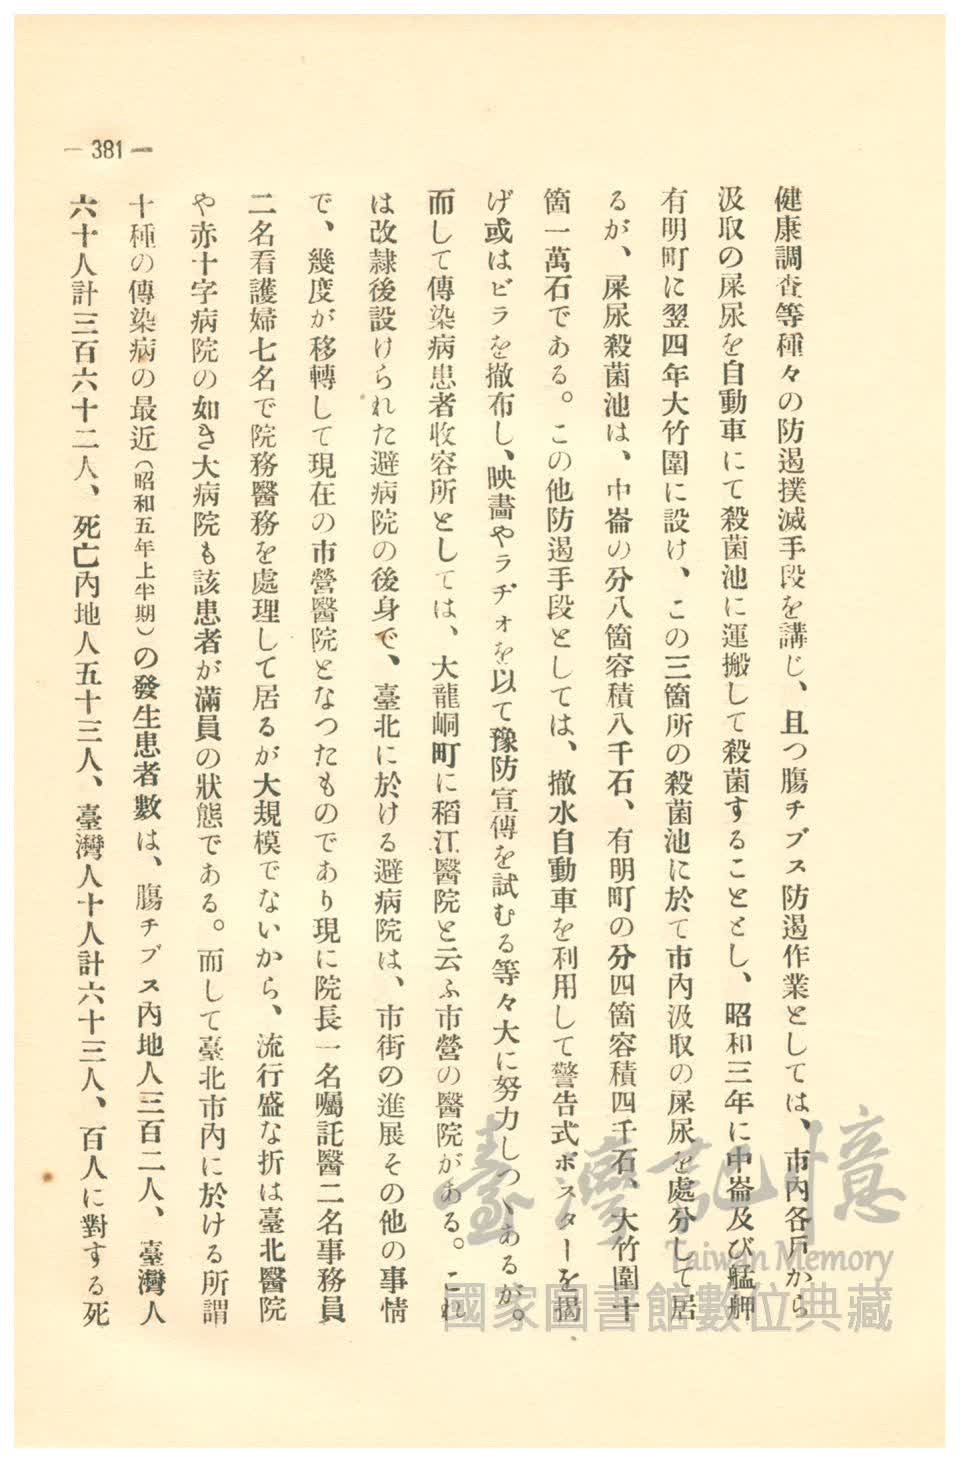 — 381 —
健康調査等種々の防遏撲滅手段を講じ、且つ膓チブス防遏作業としては、市內各戶から
汲取の屎尿を自動車にて殺菌池に運搬して殺菌することとし、昭和三年に中崙及び艋舺
有明町に翌四年大竹圍に設け、この三箇所の殺菌池に於て市內汲取の屎尿を處分して居
るが、屎尿殺菌池は、中崙の分八箇容積八千石、有明町の分四箇容積四千石、大竹圍十
箇一萬石である。この他防遏手段としては、撒水自動車を利用して警告式ポスターを揭
げ或はビラを撒布し、映畵やラヂオを以て豫防宣傳を試むる等々大に努力しつゝあるが。
而して傳染病患者收容所としては、大龍峒町に稻江醫院と云ふ市營の醫院がある。これ
は改隷後設けられた避病院の後身で、臺北に於ける避病院は、市街の進展その他の事情
で、幾度が移轉して現在の市營醫院となつたものであり現に院長一名囑託醫二名事務員
二名看護婦七名で院務醫務を處理して居るが大規模でないから、流行盛な折は臺北醫院
や赤十字病院の如き大病院も該患者が滿員の狀態である。而して臺北市內に於ける所謂
十種の傳染病の最近(昭和五年上半期)の發生患者數は、膓チブス內地人三百二人、臺灣人
六十人計三百六十二人、死亡內地人五十三人、臺灣人十人計六十三人、百人に對する死
臺灣記憶
Taiwan Memory
國家圖書館數位典藏